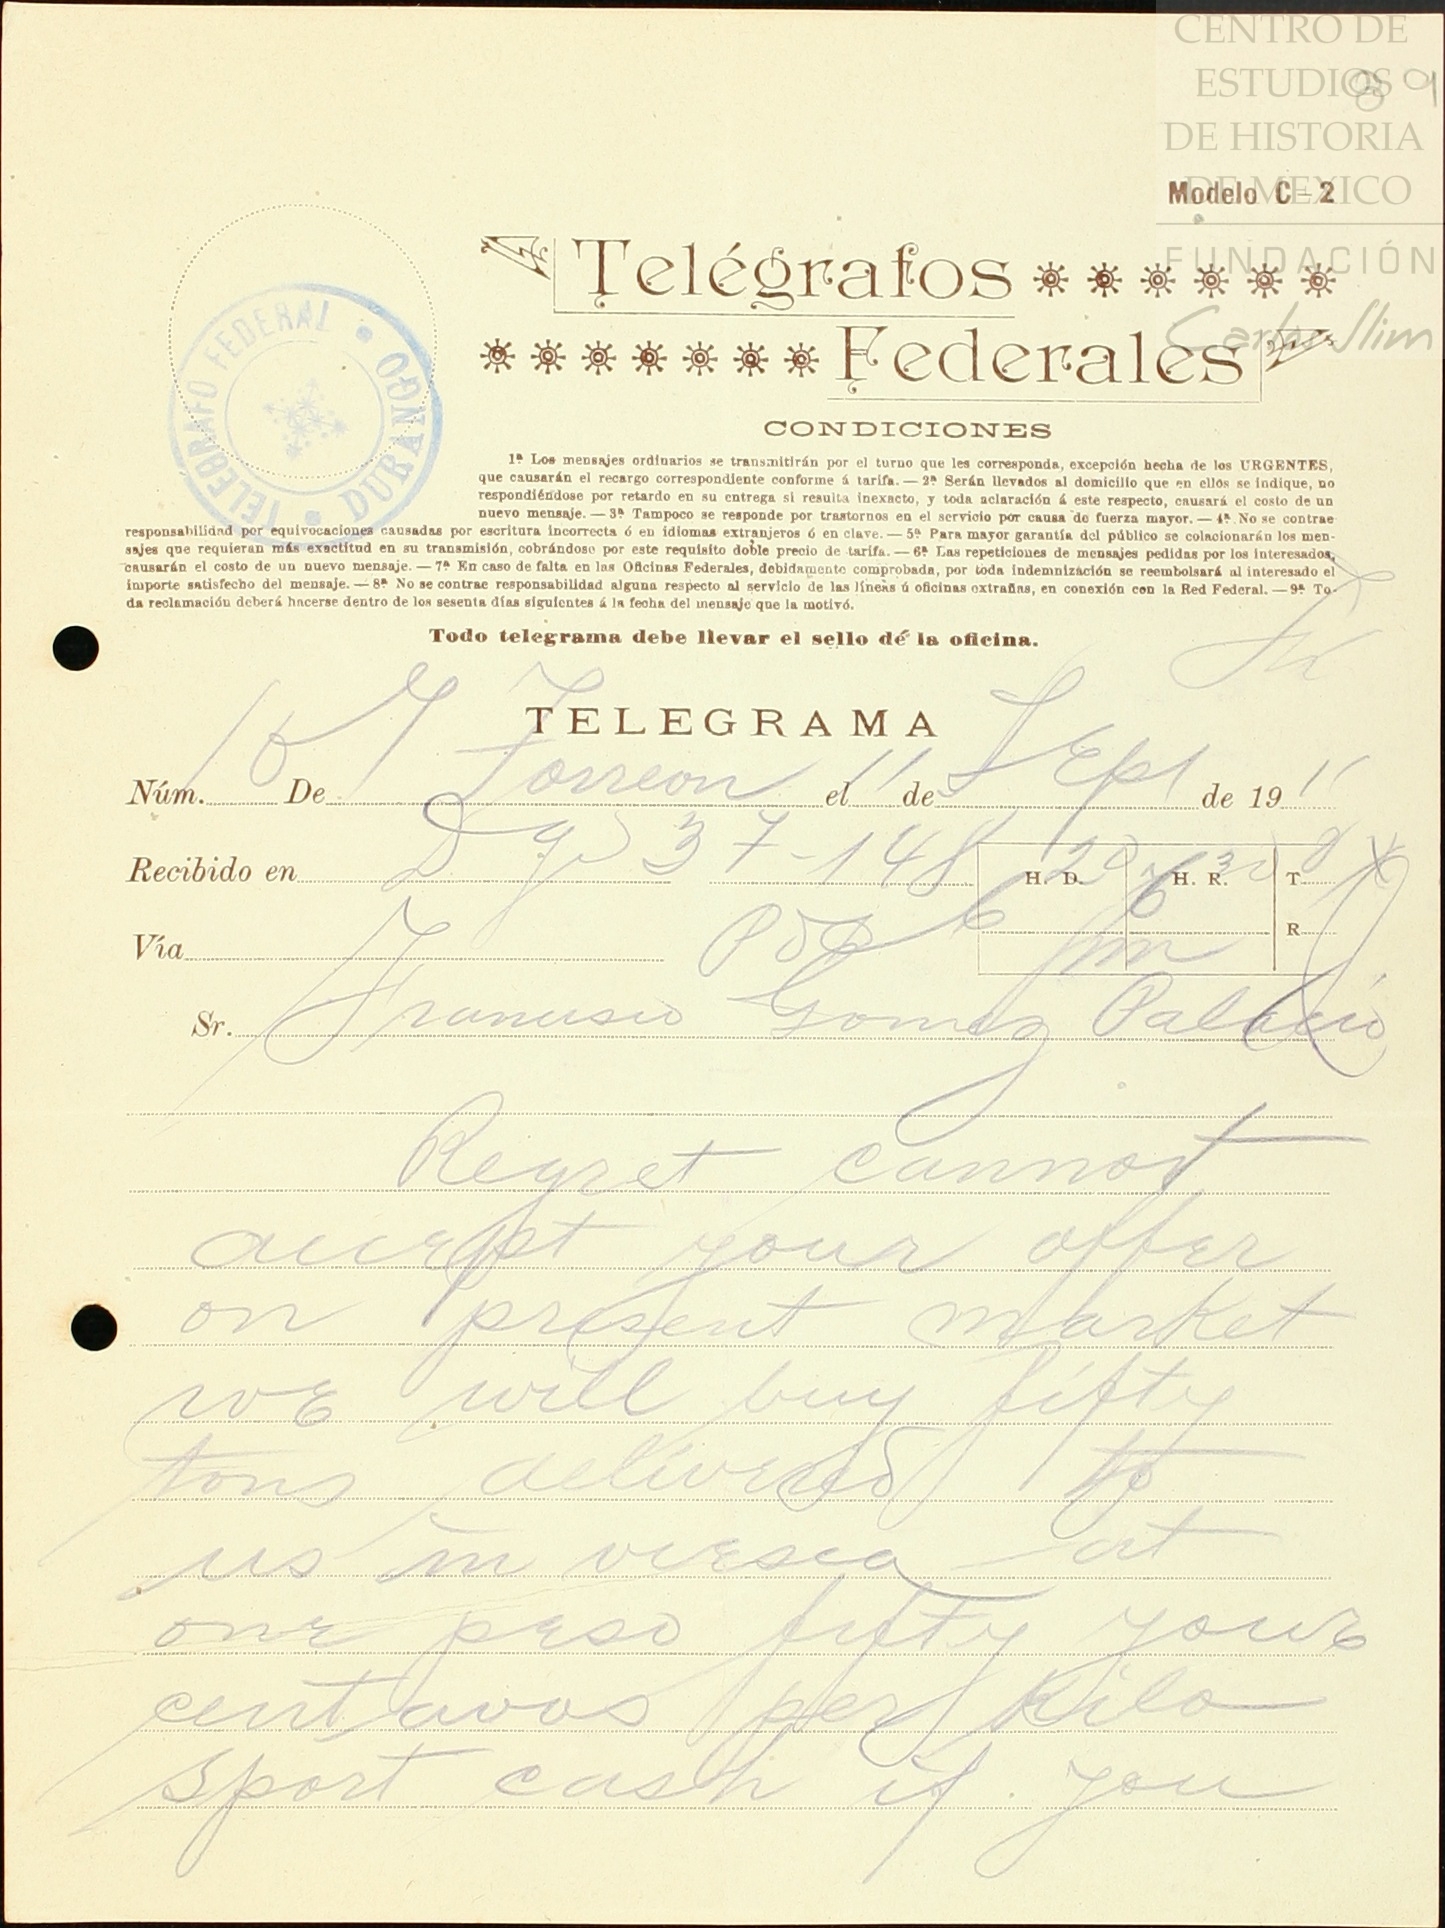 CENTRO DE
ESTUDIOS
DE HISTORIA
DE MEXICO
FUNDACIÓN
Carlos Slim
89
Modelo C-2
Telégrafos
Federales
TELEGRAFO FEDERAL • DURANGO •
CONDICIONES
1ª Los mensajes ordinarios se transmitirán por el turno que les corresponda, excepción hecha de los URGENTES,
que causarán el recargo correspondiente conforme á tarifa. — 2ª Serán llevados al domicilio que en ellos se indique, no
respondiéndose por retardo en su entrega si resulta inexacto, y toda aclaración á este respecto, causará el costo de un
nuevo mensaje. — 3ª Tampoco se responde por trastornos en el servicio por causa de fuerza mayor. — 4ª No se contrae
responsabilidad por equivocaciones causadas por escritura incorrecta ó en idiomas extranjeros ó en clave. — 5ª Para mayor garantía del público se colacionarán los men-
sajes que requieran más exactitud en su transmisión, cobrándose por este requisito doble precio de tarifa. — 6ª Las repeticiones de mensajes pedidas por los interesados,
causarán el costo de un nuevo mensaje. — 7ª En caso de falta en las Oficinas Federales, debidamente comprobada, por toda indemnización se reembolsará al interesado el
importe satisfecho del mensaje. — 8ª No se contrae responsabilidad alguna respecto al servicio de las líneas ú oficinas extrañas, en conexión con la Red Federal. — 9ª To-
da reclamación deberá hacerse dentro de los sesenta días siguientes á la fecha del mensaje que la motivó.
Todo telegrama debe llevar el sello de la oficina.
TELEGRAMA
Núm. De Torreon el 11 de Sept de 1911
Recibido en Dgo 37-148 H. D. H. R. 630 T.
Vía pm R
Sr. Francisco Gomez Palacio
Regret cannot
accept your offer
on present market
we will buy fifty
tons delivered to
us in viesca at
one peso fifty your
centavos per kilo
sport cash if you